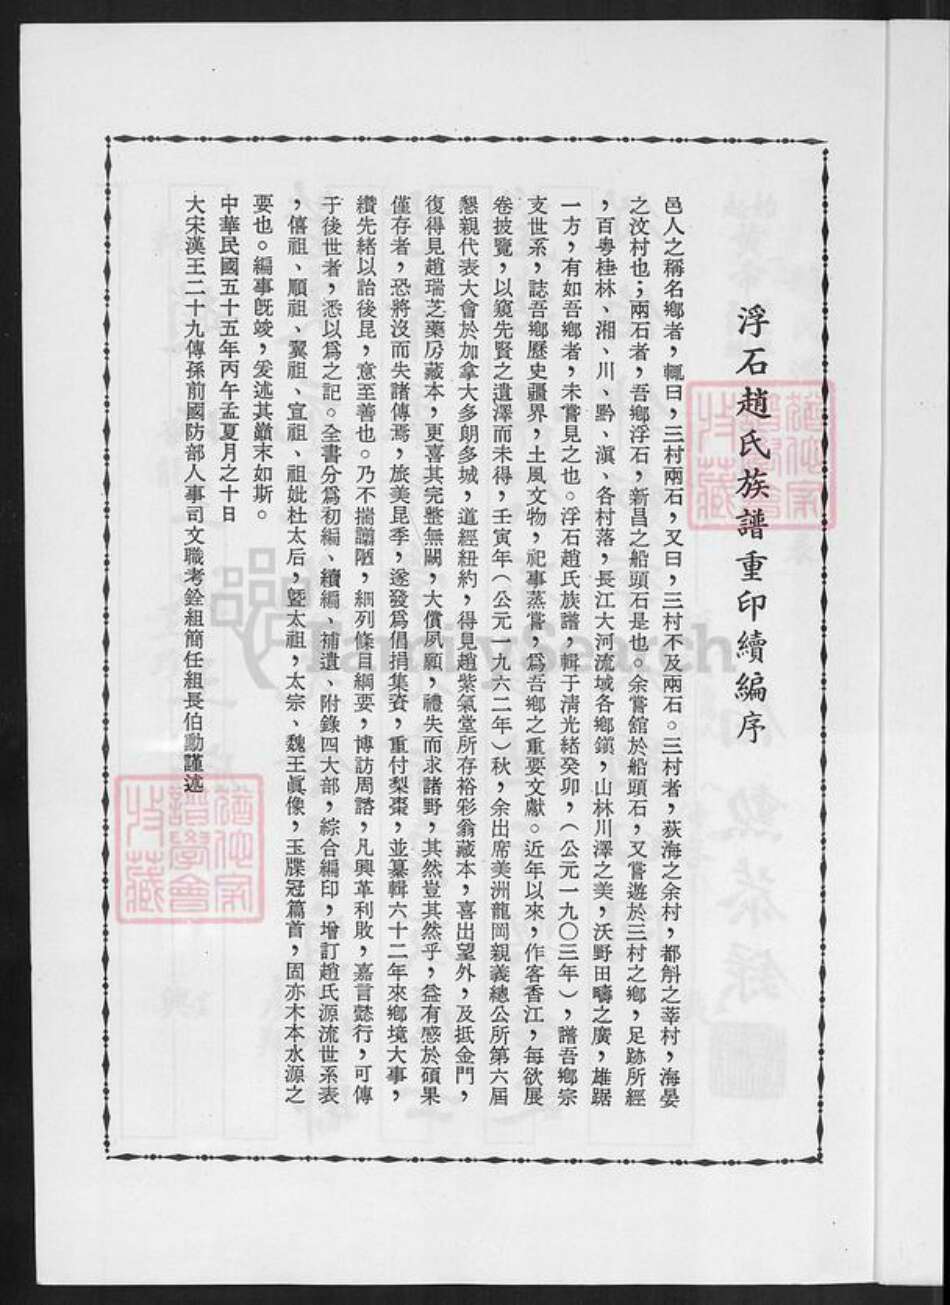 浮石趙氏族譜重印續編序
邑人之稱名鄉者，輒曰，三村兩石，又曰，三村不及兩石。三村者，荻海之余村，都斛之莘村，海晏
之汶村也；兩石者，吾鄉浮石，新昌之船頭石是也。余嘗舘於船頭石，又嘗遊於三村之鄉，足跡所經
，百粵桂林、湘、川、黔、滇、各村落，長江大河流域各鄉鎮，山林川澤之美，沃野田疇之廣，雄踞
一方，有如吾鄉者，未嘗見之也。浮石趙氏族譜，輯于清光緒癸卯，（公元一九〇三年），譜吾鄉宗
支世系，誌吾鄉歷史疆界，土風文物，祀事蒸嘗，爲吾鄉之重要文獻。近年以來，作客香江，每欲展
卷披覽，以窺先賢之遺澤而未得，壬寅年（公元一九六二年）秋，余出席美洲龍岡親義總公所第六屆
懇親代表大會於加拿大多朗多城，道經紐約，得見趙紫氣堂所存裕彩翁藏本，喜出望外，及抵金門，
復得見趙瑞芝藥房藏本，更喜其完整無闕，大償夙願，禮失而求諸野，其然豈其然乎，益有感於碩果
僅存者，恐將沒而失諸傳焉，旅美昆季，遂發爲倡捐集資，重付梨棗，並纂輯六十二年來鄉境大事，
纘先緒以詒後昆，意至善也。乃不揣譾陋，綑列條目綱要，博訪周諮，凡興革利敗，嘉言懿行，可傳
于後世者，悉以爲之記。全書分爲初編、續編、補遺、附錄四大部，綜合編印，增訂趙氏源流世系表
，僖祖、順祖、翼祖、宣祖、祖妣杜太后，曁太祖，太宗、魏王眞像，玉牒冠篇首，固亦木本水源之
要也。編事旣竣，爰述其巔末如斯。
中華民國五十五年丙午孟夏月之十日
大宋漢王二十九傳孫前國防部人事司文職考銓組簡任組長伯勳謹述
FamilySearch